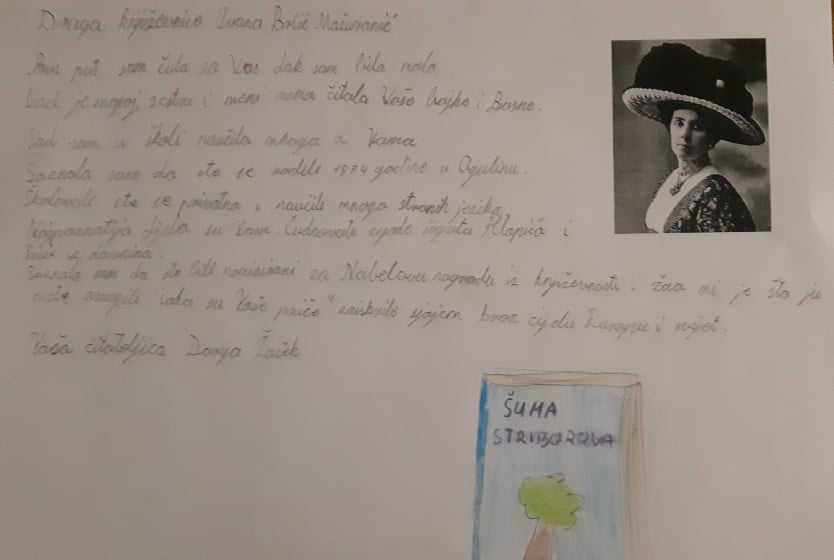 Draga književnice "Ivana Brlić Mažuranić"
Prvi put sam čula za Vas dok sam bila mala
kad je mojoj sestri i meni mama čitala Vaše bajke i Basne.
Sad sam u školi naučila mnogo o Vama
Saznala sam da ste se rodili 1874 godine u Ogulinu.
Školovali ste se privatno i naučili mnogo stranih jezika,
Najpoznatija djela su Vam Čudnovate zgode šegrta Hlapića i
Priče iz davnina.
Saznala sam da ste bili nominirani za Nobelovu nagradu iz književnosti i žao mi je što ju
niste osvojili iako su Vaše priče" zaiskrile sjajem kroz cijelu Europu i svijet.
Vaša čitateljica Dorija Žaček
ŠUMA
STRIBOROVA